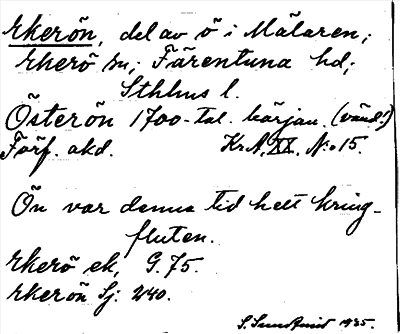 Ekerön, del av ö i Mälaren;
Ekerö sn; Färentuna hd;
Sthlms l.
Österön 1700-tal. början. (vänd!)
Förf. akd. Kr.A. XX. N:o 15.
Ön var denna tid helt kring-
fluten.
Ekerö ek, G. 75.
Ekerön Sj: 240.
S. Sundquist 1935.